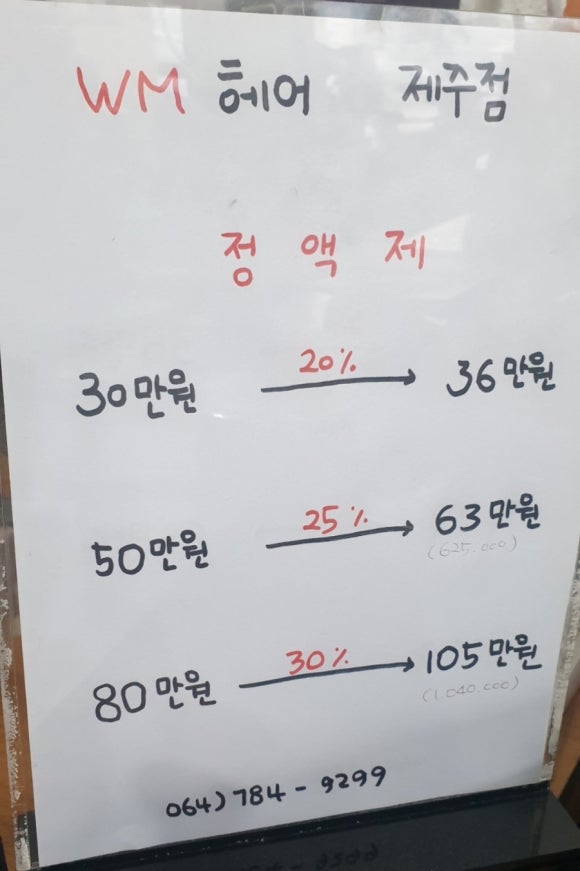 WM 헤어 제주점
정 액 제
30만원 20% 36만원
50만원 25% 63만원
(625.000)
80만원 30% 105만원
(1.040.000)
064) 784 - 9299